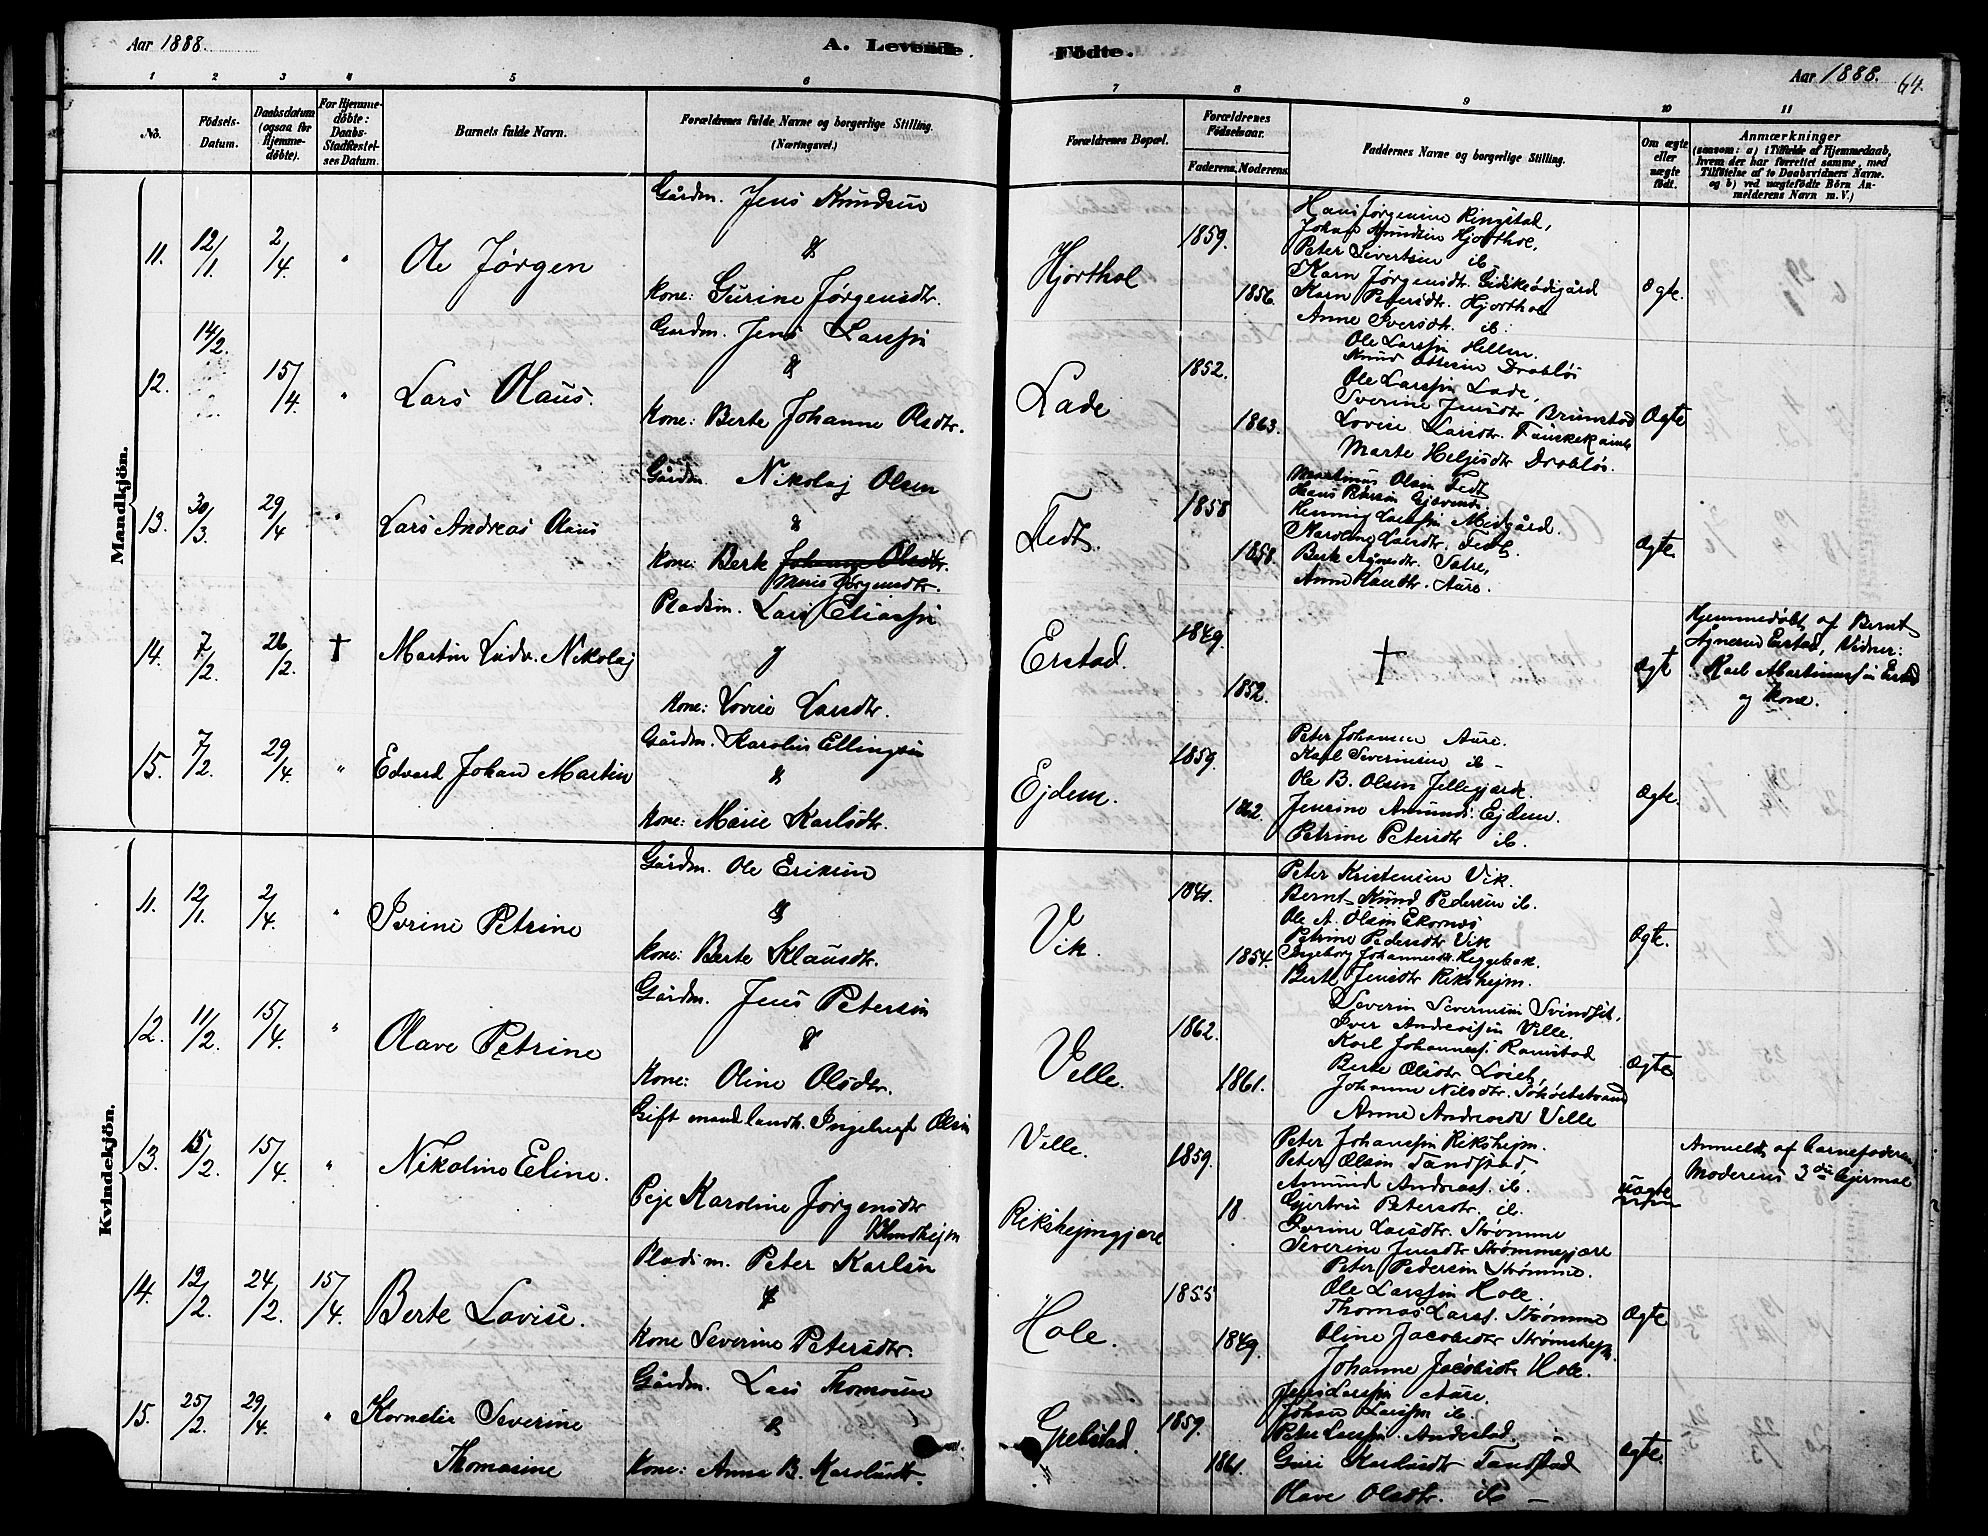 Aar 1888.
A. Levende
Fødte.
Aar 1888.
64.
1 2 3 4 5 6 7 8 9 10 11
No.
Födsels-Datum.
Daabsdatum (ogsaa for Hjemme-døbte).
For Hjemme-døbte: Daabs-Stadfæstel-ses Datum.
Barnets fulde Navn.
Forældrenes fulde Navne og borgerlige Stilling.
(Næringsvei.)
Forældrenes Bopæl.
Forældrenes Födselsaar.
Faderens. Moderens.
Faddernes Navne og borgerlige Stilling.
Om ægte eller uægte født.
Anmærkninger
(saasom: a) i Tilfælde af Hjemmedaab,
hvem der har forrettet samme, med
Tilføielse af to Daabsvidners Navne.
og b) ved uægtefødte Börn An-
melderens Navn m. V.)
Mandkjön.
11. 12/1 2/4 " Ole Jørgen
Gårdm. Jens Knudsen
&
Kone: Gurine Jørgensdtr.
Hjorthol 1859. 1856.
Hans Jørgenine Ringstad,
Johan Knudsen Hjorthol,
Peter Sivertsen ib
Karn Jørgensdtr. Gidskeødigård
Karn Petersdtr. Hjorthol
Anne Iversdtr. ib.
Ægte.
12. 14/2. 15/4. " Lars Olaus.
Gardm. Jens Larssen
&
Kone: Berte Johanne Olsdtr.
Lade 1852. 1863.
Ole Larssen Hellen.
Knud Ottesen Drabløs
Ole Larssen Lade,
Sverine Jensdtr Brunstad
Lovise Larsdtr.
Marte Helgesdtr Drabløs.
Ægte
13. 30/3 29/4 " Lars Andreas Olaus
Gårdm. Nikolaj Olsen
&
Kone: Berte Johanne Olsdtr.
Marie Jørgensdtr.
Tedt. 1858 1858.
Martinus Olsen Tedt
Hans Petersen
Henning Larssen Midgård.
Karoline Larsdtr. Tedt.
Berte Agnesdtr. Satre,
Anne Knutdtr. Aure.
Ægte
14. 7/2 26/2. † Martin Ludv. Nikolaj
Pladsm. Lars Eliassen
&
Kone: Lovise Larsdtr.
Erstad. 1849. 1852.
†
Ægte
Hjemmedøbt af Bernt
Erstad, Vidner:
Karl Martinussen Erstad
og Kone.
15. 7/2. 29/4. " Edvard Johan Martin
Gårdm. Karolus Ellingsen
&
Kone: Marie Karlsdtr.
Ejdem. 1859. 1862.
Peter Johansen Aure.
Karl Severinsen ib -
Ole B. Olsen Jellegjærde.
Jensine Amunds. Ejdem.
Petrine Petersdtr ib.
Ægte.
Kvindekjön.
11. 12/1. 2/4. " Ivrine Petrine
Gårdm. Ole Eriksen
&
Kone: Berte Klausdtr.
Vik. 1841. 1854.
Peter Kristensen Vik.
Bernt Knud Pedersen ib.
Ole A. Olsen Ekornæs
Petrine Pedersdtr Vik
Ingeborg Johannesdtr. Heggebak.
Berte Jensdtr Rikshejm.
Ægte.
12. 11/2. 15/4. " Olave Petrine
Gårdm. Jens Petersen
&
Kone: Oline Olsdtr.
Velle. 1862. 1861.
Severin Severinsen Svindset,
Iver Andreassen Velle,
Karl Johanness. Ramstad
Berte Olsdtr
Johanne Nilsdtr.
Anne Andreasdtr Velle
Ægte.
13. 15/2. 15/4. " Nikoline Eline.
Gift mand landh. Ingebregt Olsen
Pige Karoline Jørgensdtr
Blindhejm
Velle. Rikshejmgjære
1859. 18
Peter Johanssen Rikshejm.
Peter Olsen Tandstad,
Amund Andreass. ib.
Gjertru Petersdtr. ib.
Ivrine Larsdtr. Strømme
Severine Jensdtr Strømmegjære
uægte
Anmeldt af barnefaderen
Moderens 3die lejermål
14. 12/2. 24/2. 15/4. Berte Lovise.
Pladsm. Peter Karlsen
&
Kone Severine Petersdtr.
Hole. 1855 1849.
Peter Pedersen Strømme.
Ole Larssen Hole.
Thomas Larss. Strømme
Oline Jacobsdtr Strømshejm.
Johanne Jacobsdtr Hole.
Ægte
15. 25/2. 29/4. " Kornelie Severine
Thomasine
Gårdm. Lars Thomassen
&
Kone: Anna B. Karolusdtr.
Grebstad. 1859. 1861.
Jens Larssen Aure.
Johan Larssen ib.
Peter Larssen Andestad.
Guri Karlusdtr Tandstad
Olave Olsdtr. ib -
Ægte.